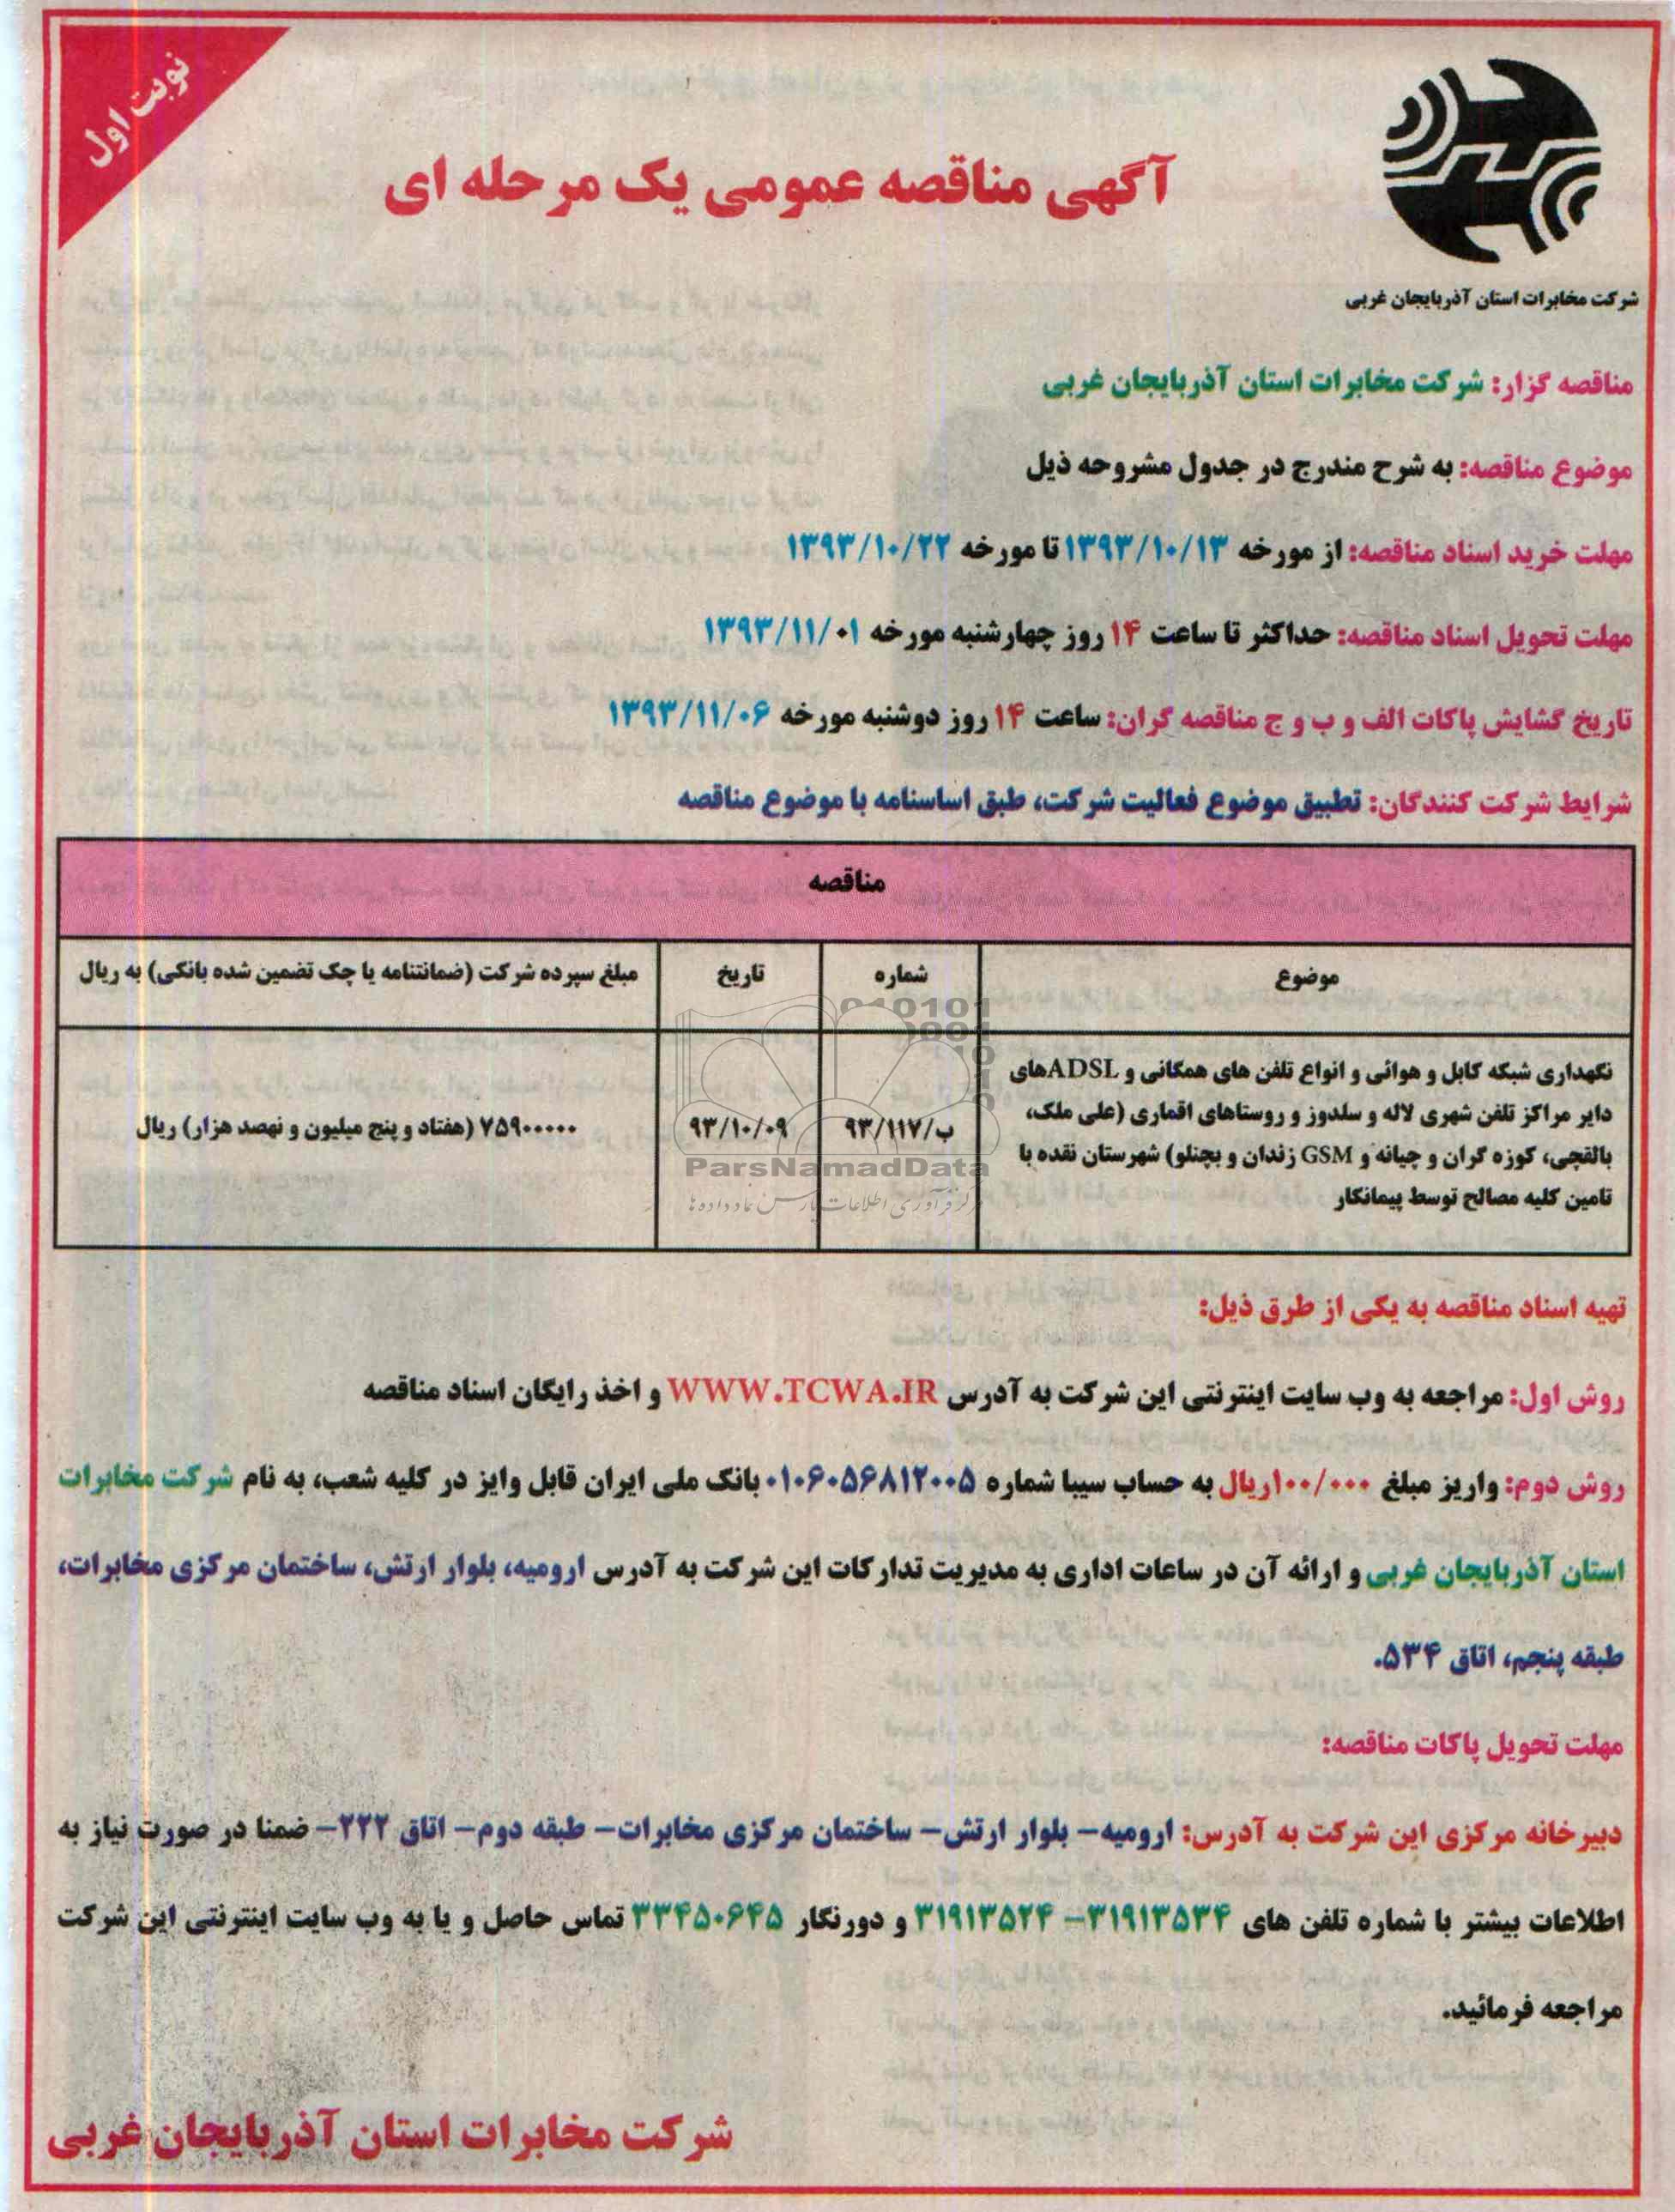 نوبت اول
آگهی مناقصه عمومی یک مرحله ای
شرکت مخابرات استان آذربایجان غربی
مناقصه گزار: شرکت مخابرات استان آذربایجان غربی
موضوع مناقصه: به شرح مندرج در جدول مشروحه ذیل
مهلت خرید اسناد مناقصه: از مورخه ۱۳۹۳/۱۰/۱۳ تا مورخه ۱۳۹۳/۱۰/۲۲
مهلت تحویل اسناد مناقصه: حداکثر تا ساعت ۱۴ روز چهارشنبه مورخه ۱۳۹۳/۱۱/۰۱
تاریخ گشایش پاکات الف و ب و ج مناقصه گران: ساعت ۱۴ روز دوشنبه مورخه ۱۳۹۳/۱۱/۰۶
شرایط شرکت کنندگان: تطبیق موضوع فعالیت شرکت، طبق اساسنامه با موضوع مناقصه
مناقصه
موضوع
شماره
تاریخ
مبلغ سپرده شرکت (ضمانتنامه یا چک تضمین شده بانکی) به ریال
نگهداری شبکه کابل و هوائی و انواع تلفن های همگانی و ADSLهای
دایر مراکز تلفن شهری لاله و سلدوز و روستاهای اقماری (علی ملک،
بالقچی، کوزه گران و چیانه و GSM زندان و بچنلو) شهرستان نقده با
تامین کلیه مصالح توسط پیمانکار
ب/۹۳/۱۱۷
۹۳/۱۰/۰۹
۷۵۹۰۰۰۰۰ (هفتاد و پنج میلیون و نهصد هزار) ریال
010101
ParsNamadData
مرکز فرآوری اطلاعات پارس نماد داده ها
تهیه اسناد مناقصه به یکی از طرق ذیل:
روش اول: مراجعه به وب سایت اینترنتی این شرکت به آدرس WWW.TCWA.IR و اخذ رایگان اسناد مناقصه
روش دوم: واریز مبلغ ۱۰۰/۰۰۰ریال به حساب سیبا شماره ۰۱۰۶۰۵۶۸۱۲۰۰۵ بانک ملی ایران قابل وایز در کلیه شعب، به نام شرکت مخابرات
استان آذربایجان غربی و ارائه آن در ساعات اداری به مدیریت تدارکات این شرکت به آدرس ارومیه، بلوار ارتش، ساختمان مرکزی مخابرات،
طبقه پنجم، اتاق ۵۳۴.
مهلت تحویل پاکات مناقصه:
دبیرخانه مرکزی این شرکت به آدرس: ارومیه– بلوار ارتش– ساختمان مرکزی مخابرات– طبقه دوم– اتاق ۲۲۲– ضمنا در صورت نیاز به
اطلاعات بیشتر با شماره تلفن های ۳۱۹۱۳۵۳۴– ۳۱۹۱۳۵۲۴ و دورنگار ۳۳۴۵۰۶۴۵ تماس حاصل و یا به وب سایت اینترنتی این شرکت
مراجعه فرمائید.
شرکت مخابرات استان آذربایجان غربی